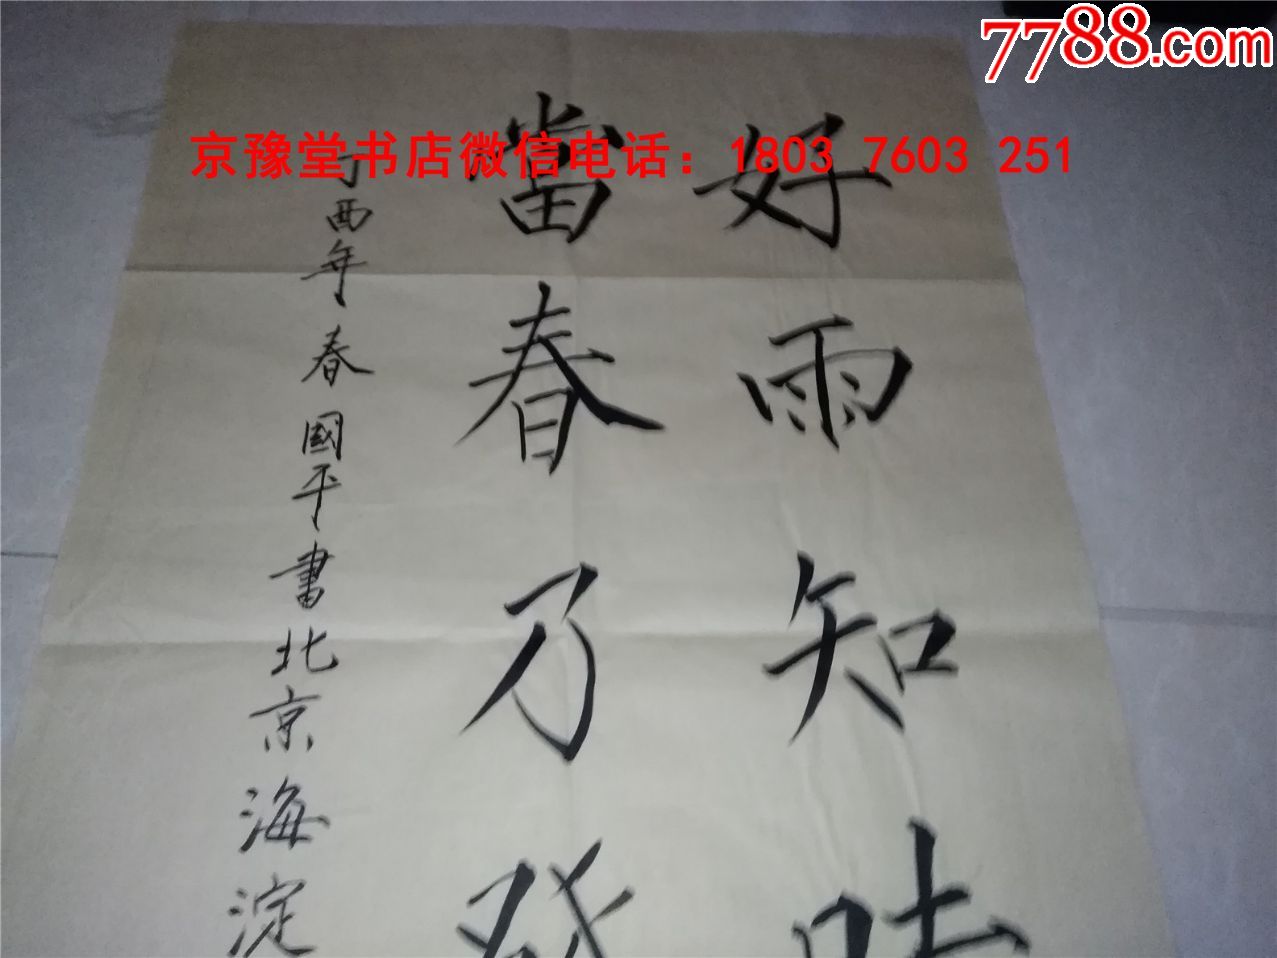 7788.com
京豫堂书店微信电话：1803 7603 251
好雨知時
當春乃發
丁酉年春國平書北京海淀